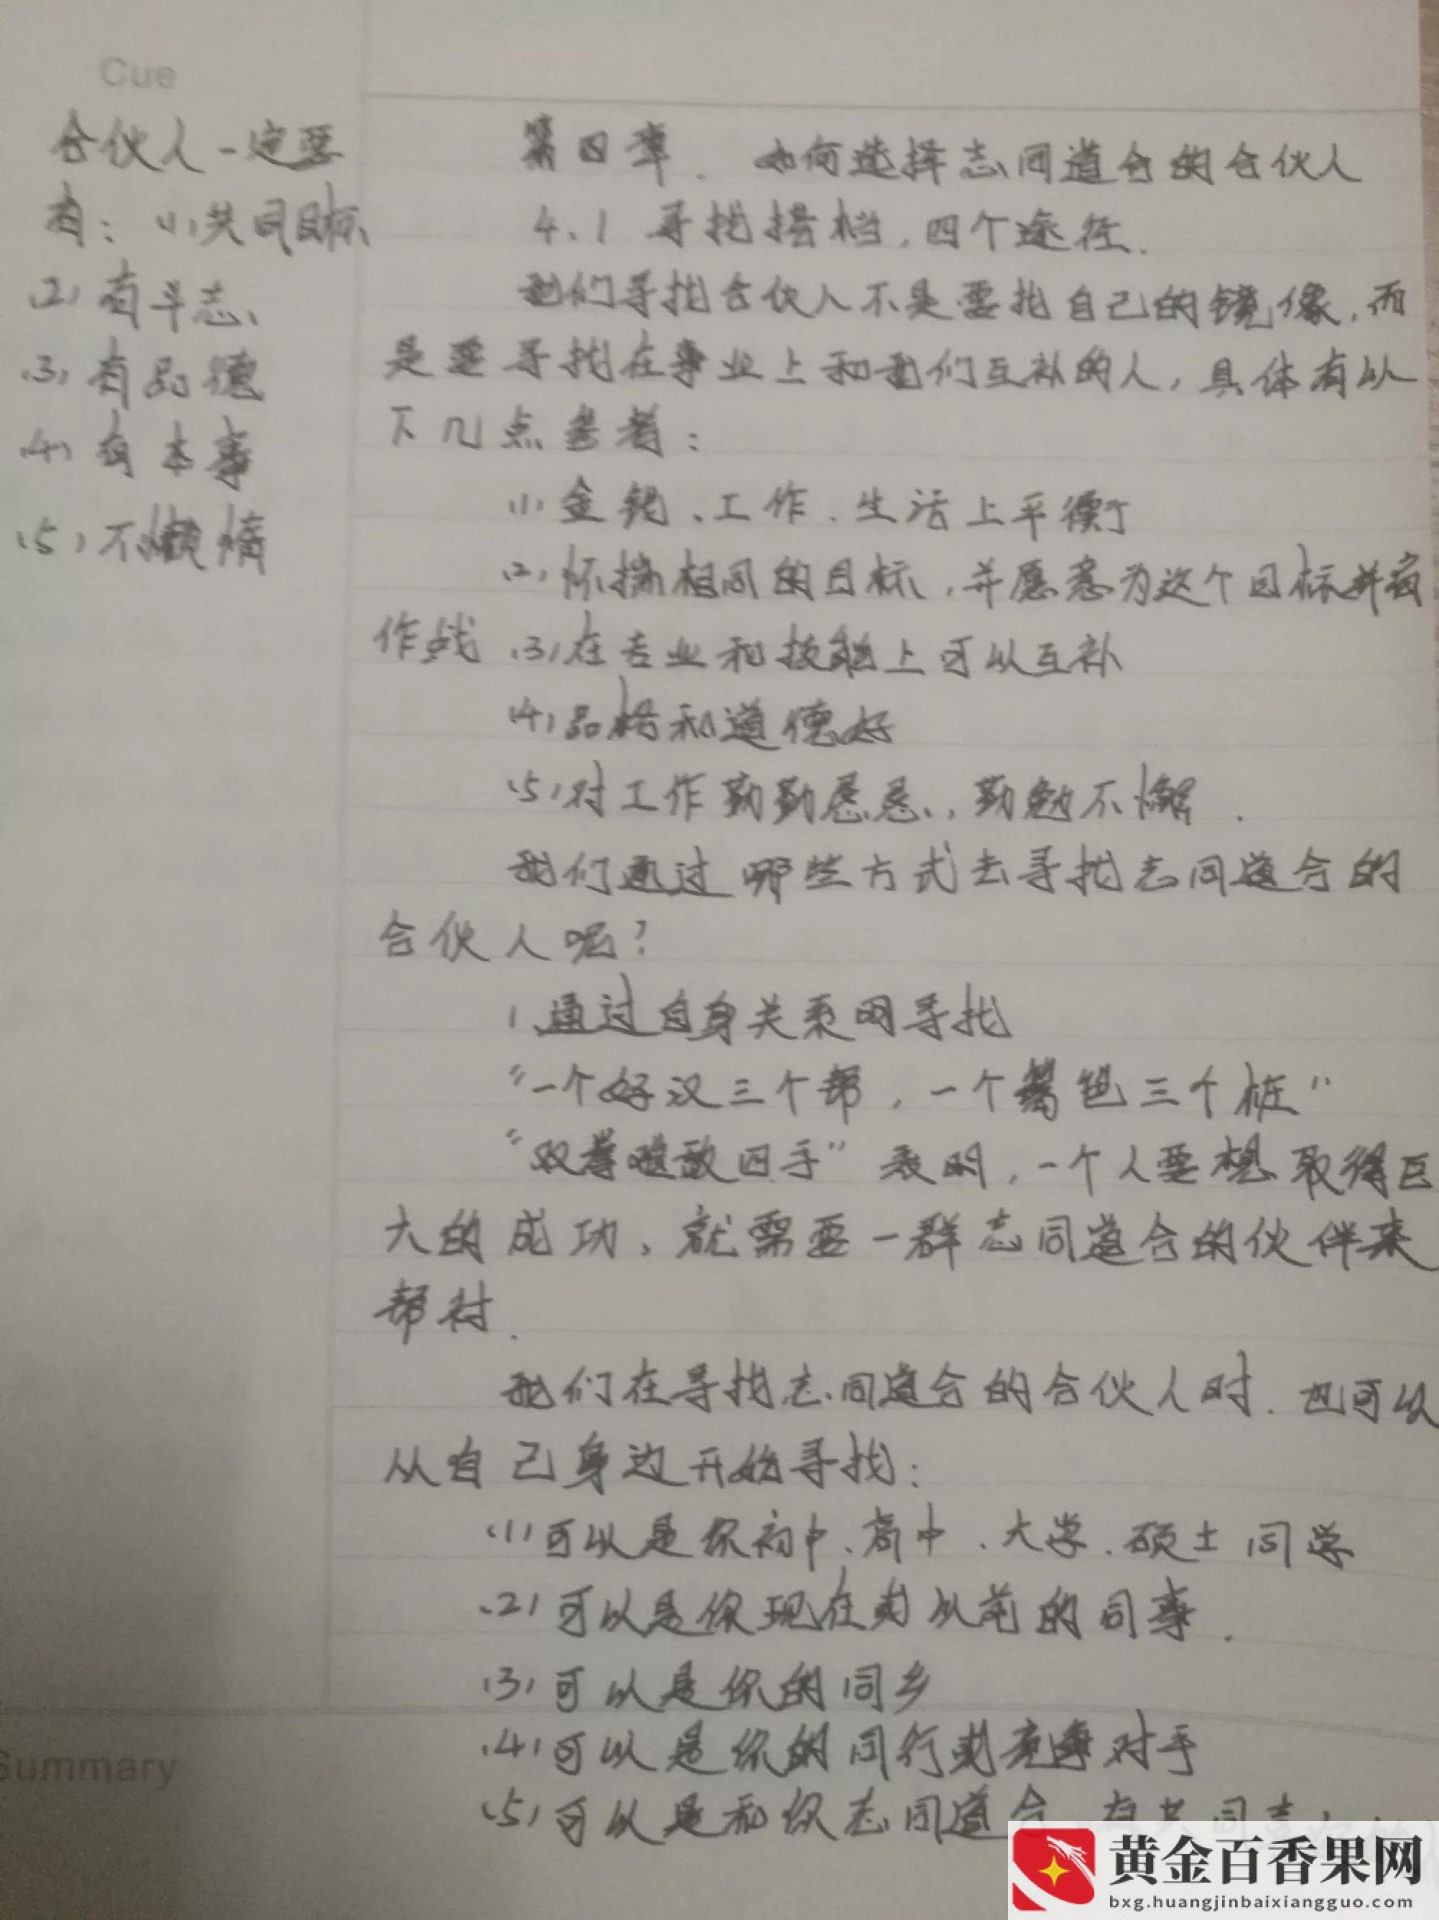 Cue
合伙人一定要
有：(1)共同目标
(2)有斗志、
(3)有品德
(4)有本事
(5)不懒惰
第四章. 如何选择志同道合的合伙人
4.1 寻找搭档，四个途径.
我们寻找合伙人不是要找自己的镜像，而
是要寻找在事业上和我们互补的人，具体有以
下几点参考：
(1)金钱、工作、生活上平衡
(2)怀揣相同的目标，并愿意为这个目标并肩
作战 (3)在专业和技能上可以互补
(4)品格和道德好
(5)对工作勤勤恳恳，勤勉不懈.
我们通过哪些方式去寻找志同道合的
合伙人呢？
1、通过自身关系网寻找
“一个好汉三个帮，一个篱笆三个桩”
“双拳难敌四手”表明，一个人要想取得巨
大的成功，就需要一群志同道合的伙伴来
帮衬.
我们在寻找志同道合的合伙人时. 也可以
从自己身边开始寻找：
(1)可以是你初中、高中、大学、硕士同学
(2)可以是你现在或从前的同事.
(3)可以是你的同乡
(4)可以是你的同行或竞争对手
(5)可以是和你志同道合 有共同
Summary
黄金百香果网
bxg.huangjinbaixiangguo.com